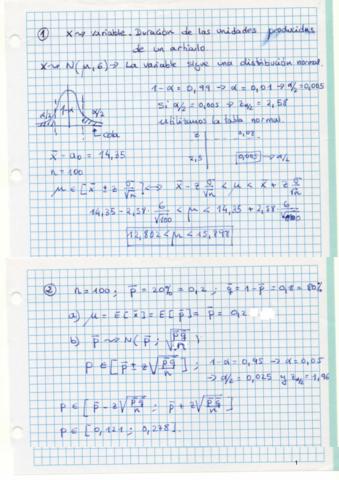 ① X ⇝ variable. Duración de las unidades producidas
de un artículo
X ⇝ N(μ, 6) → La variable sigue una distribución normal.
1 - α = 0,99 → α = 0,01 → α/2 = 0,005
Si α/2 = 0,005 → zα/2 = 2,58
utilizamos la tabla normal.
α/2 1-α α/2
cola
z 0,08
2,5 0,005 → α/2
x̄ = a₀ = 14,35
n = 100
μ ∈ [x̄ ± z σ/√n] ⟺ x̄ - z σ/√n < μ < x̄ + z σ/√n
14,35 - 2,58 · 6/√100 < μ < 14,35 + 2,58 · 6/√100
12,802 < μ < 15,898
② n = 100 ; p̄ = 20% = 0,2 ; q̄ = 1 - p̄ = 0,8 = 80%
a) μ = E[x̄] = E[p̄] = p̄ = 0,2
b) p̄ ⇝ N(p̄ ; √(p̄q̄/n))
P ∈ [p̄ ± z√(p̄q̄/n)] ; 1 - α = 0,95 → α = 0,05
→ α/2 = 0,025 y zα/2 = 1,96
P ∈ [p̄ - z√(p̄q̄/n) ; p̄ + z√(p̄q̄/n)]
P ∈ [0,121 ; 0,278].
1